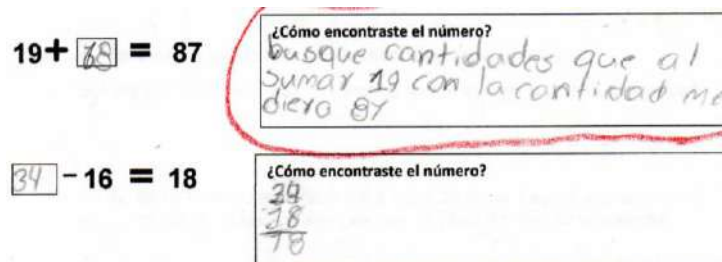 ¿Cómo encontraste el número?
19+ 68 = 87
busque cantidades que al
sumar 19 con la cantidad me
diera 87
34 - 16 = 18
¿Cómo encontraste el número?
18